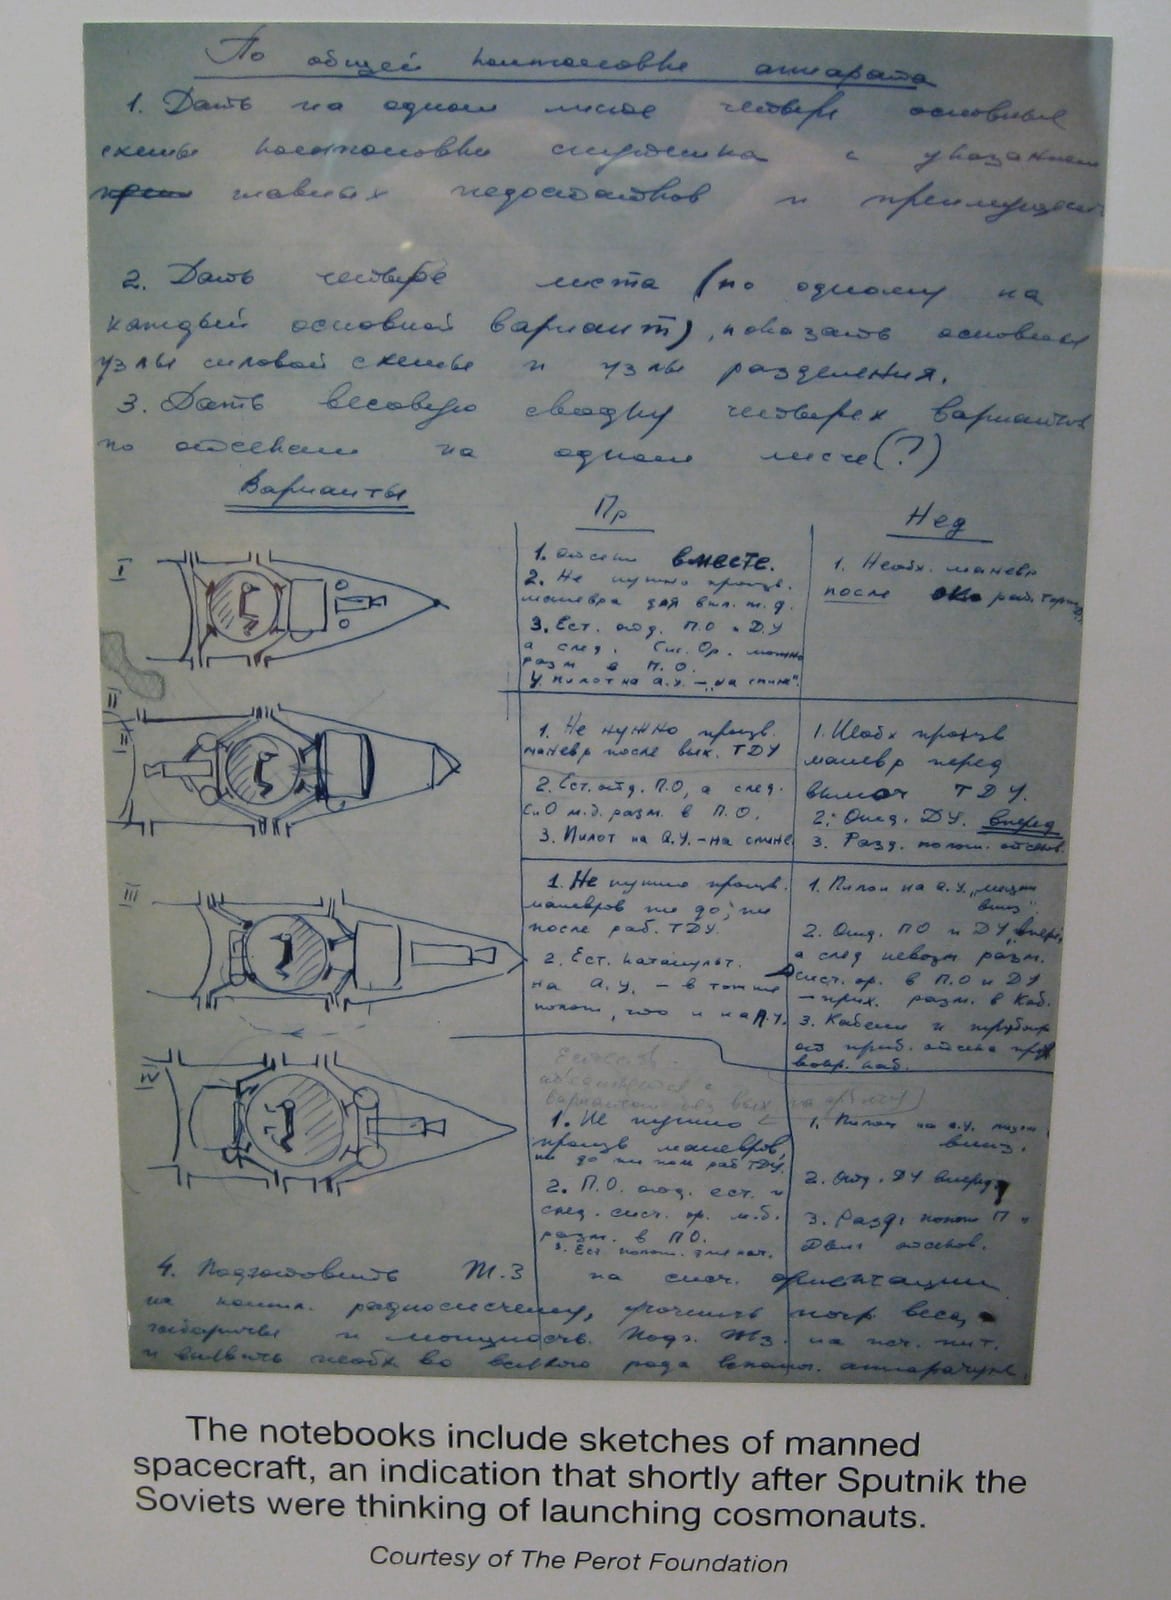 По общей компоновке аппарата
1. Дать на одном листе четыре основные
схемы компоновки спутника с указанием
главных недостатков и преимуществ
2. Дать четыре листа (по одному на
каждый основной вариант), показать основные
узлы силовой схемы и узлы разделения.
3. Дать весовую сводку четырех вариантов
по отсекам на одном листе (?)
Варианты
Пр
Нед
I
1. отсеки вместе.
2. Не нужно произв.
маневра для вкл. т.д.
3. Ест. отд. П.О и ДУ
а след. Сис. Ор. можно
разм в П.О.
4. пилот на а.у. – „на спине".
1. Необх. маневр
после раб.
II
1. Не нужно произв.
маневр после вык. ТДУ
2. Ест. отд. П.О, а след.
С.О м.д. разм. в П.О.
3. Пилот на а.у. – на спине
1. Необх произв
маневр перед
включ ТДУ.
2. Отд. ДУ. вперед
3. Разд. полож. отсеков.
III
1. Не нужно произв.
маневров ни до, ни
после раб. ТДУ.
2. Ест. катапульт.
на а.у. – в том же
полож, что и на А.У.
1. Пилот на а.у. „лицом
вниз".
2. Отд. ПО и ДУ „вперед,
а след невозм разм.
сист. ор. в П.О и ДУ
– прих. разм. в каб.
3. Кабели и трубопр
от приб. отсека
IV
1. Не нужно
произв маневров,
ни до ни посл раб ТДУ.
2. П.О. отд. ест. и
след. сист. ор. м.б.
разм. в ПО.
3. Ест полож.
1. Пилот на а.у. лицом
вниз.
2. Отд. ДУ вперед
3. Разд. полож П и
Двиг отсеков.
4. Подготовить Т.З на сист. ориентации
на компл. радиосистему, уточнить потр веса,
габариты и мощность. Подг. ТЗ. на ист. пит.
и выявить необх во всякого рода вспом. аппаратуре.
The notebooks include sketches of manned
spacecraft, an indication that shortly after Sputnik the
Soviets were thinking of launching cosmonauts.
Courtesy of The Perot Foundation